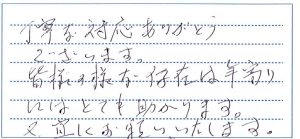 丁寧な対応ありがとう
ございます。
皆様の様な存在は年寄り
にはとても助かります。
又宜しくお願いいたします。